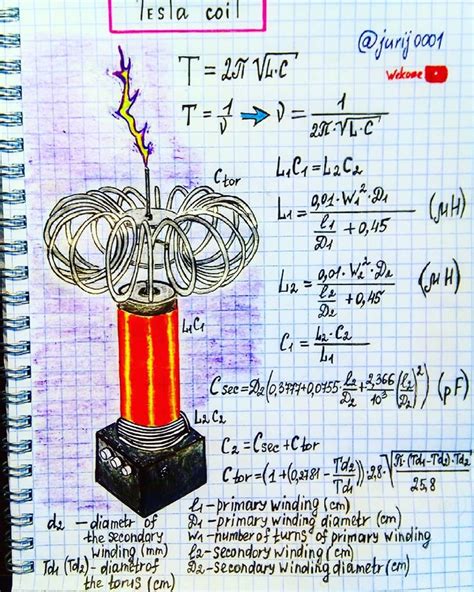 Tesla coil
@jurij0001
Welcome
T = 2π √L·C
T = 1/ν → ν = 1/(2π·√L·C)
Ctor
L1C1 = L2C2
L1 = (0,01·W1²·D1)/(l1/D1 + 0,45) (μH)
L2 = (0,01·W2²·D2)/(l2/D2 + 0,45) (μH)
L1C1
C1 = L2·C2/L1
Csec = D2(0,3777+0,0755·l2/D2+2,366/10³(l2/D2)²) (pF)
L2C2
C2 = Csec + Ctor
Ctor = (1+(0,2781 − Td2/Td1))·2,8·√(π·(Td1−Td2)·Td2/25,8)
d2 – diametr of
the secondary
winding (mm)
Td1 (Td2) – diametrof
the torus (cm)
l1 – primary winding (cm)
D1 – primary winding diametr (cm)
W1 – number of turns of primary winding
l2 – secondory winding (cm)
D2 – secondary winding diametr (cm)